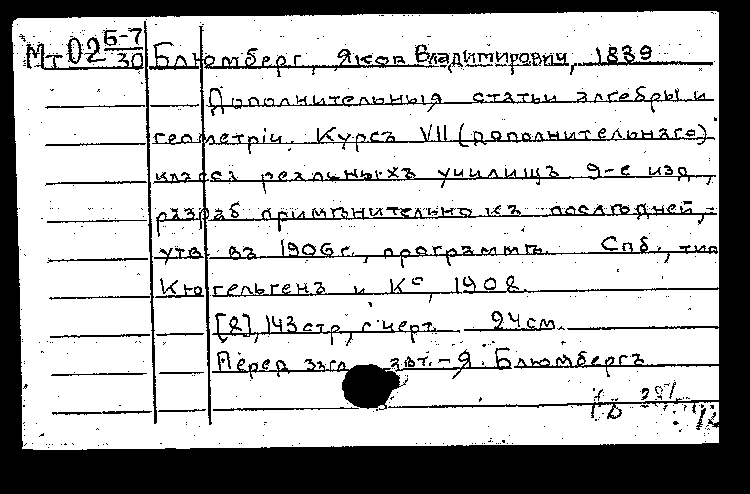 Мт02 Б-7/30 Блюмберг, Яков Владимирович, 1839
Дополнительныя статьи алгебры и
геометріи. Курсъ VII (дополнительнаго)
класса реальныхъ училищъ 9-е изд.,
разраб применительно къ последней,
утв въ 1906 г., программѣ. Спб., тип
Кюгельгенъ и Кº, 1908.
[2], 143 стр., с черт. 24 см.
Перед загл. авт. - Я. Блюмбергъ